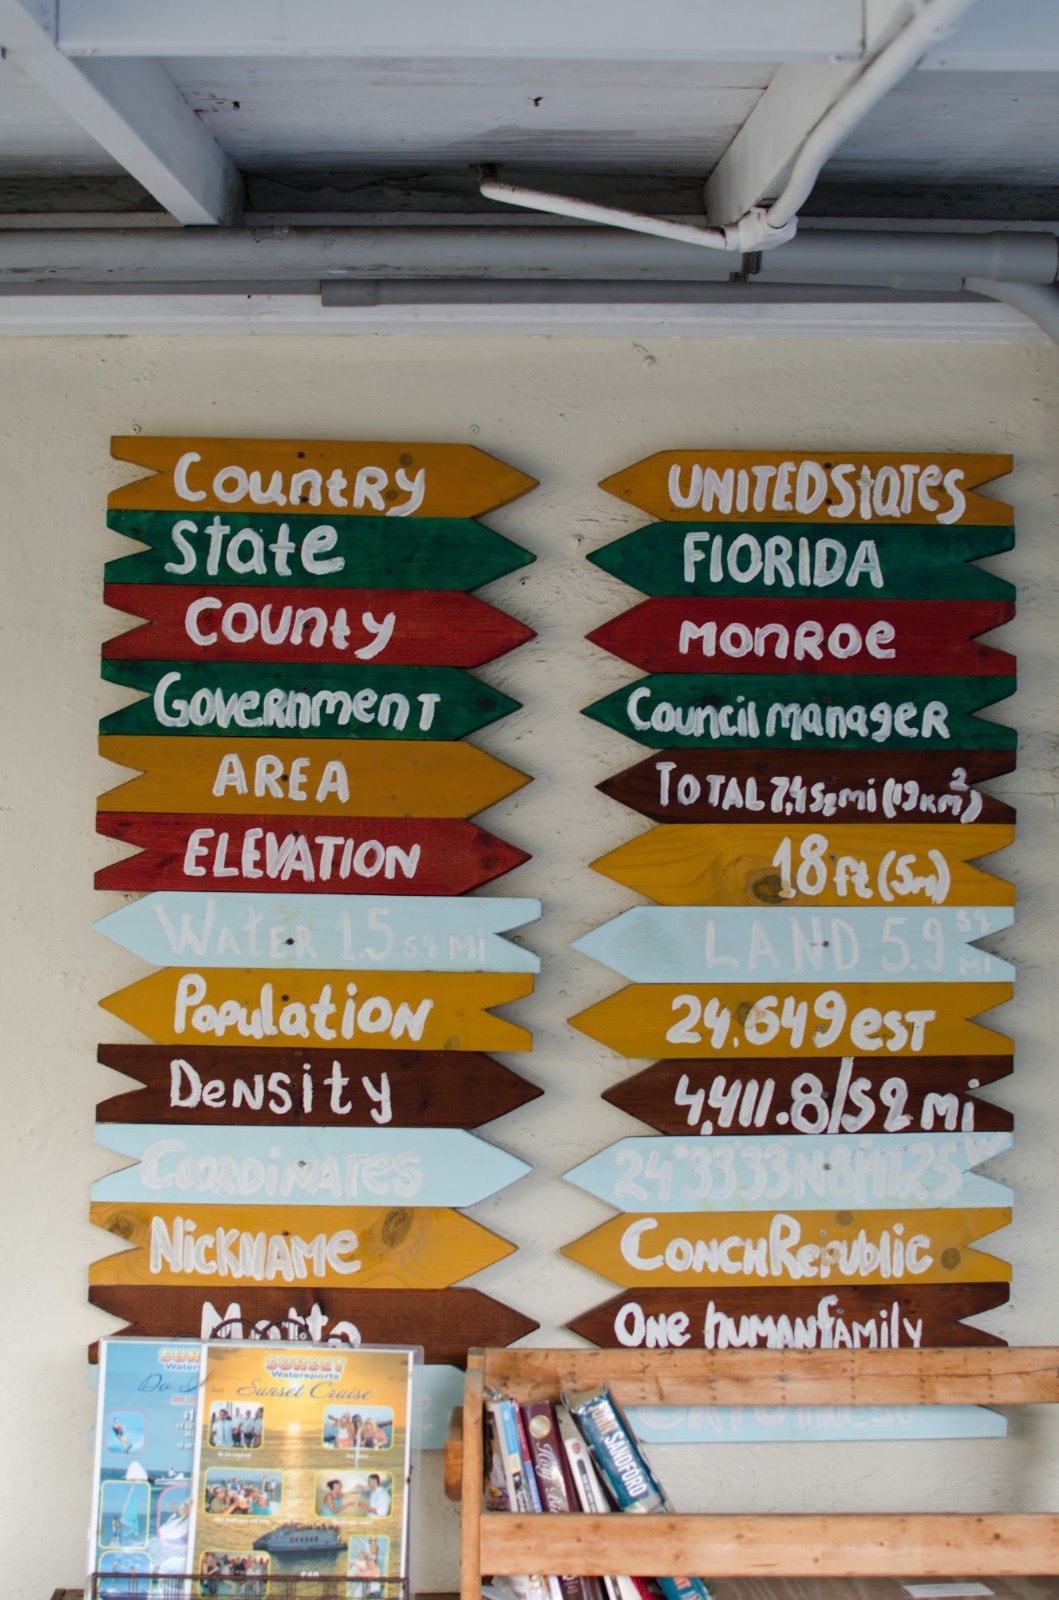 Country
UNITED States
State
FlORIDA
County
Monroe
Government
Council manager
AREA
TOTAL 7,4 sq mi (19 km²)
ELEVATION
18 ft (5m)
Water 1.5 sq Mi
LAND 5.9 sq MI
Population
24,649 est
Density
4,411.8/sq mi
Coordinates
Nickname
Conch Republic
Motto
One human family
SUNSET
Watersports
Sunset Cruise
JOHN SANDFORD